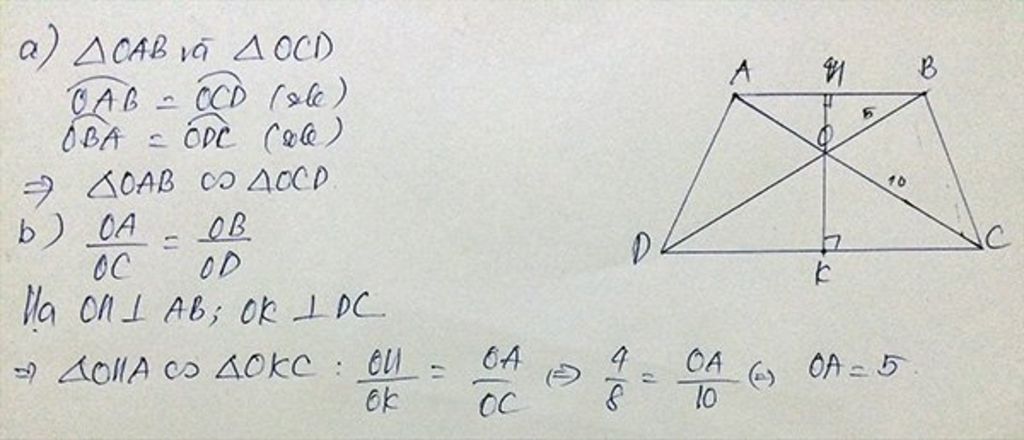 a) △OAB và △OCD
OAB = OCD (slt)
OBA = ODC (slt)
⇒ △OAB ∽ △OCD.
b) OA/OC = OB/OD
Hạ OH ⊥ AB; OK ⊥ DC
⇒ △OHA ∽ △OKC : OH/OK = OA/OC ⇔ 4/8 = OA/10 ⇔ OA = 5.
A H B
5
O
10
D K C